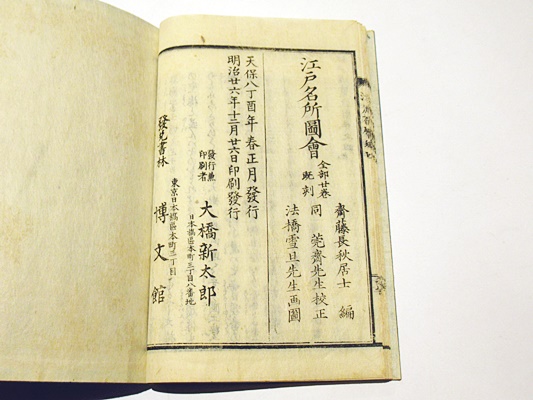 江戸名所圖會
全部廿卷
既刻
齋藤長秋居士 編
同 莞齋先生校正
法橋雪旦先生画圖
天保八丁酉年春正月發行
明治廿六年十二月廿六日印刷發行
發行兼
印刷者
大橋新太郎
日本橋區本町三丁目八番地
發兌書林
東京日本橋區本町三丁目
博文館